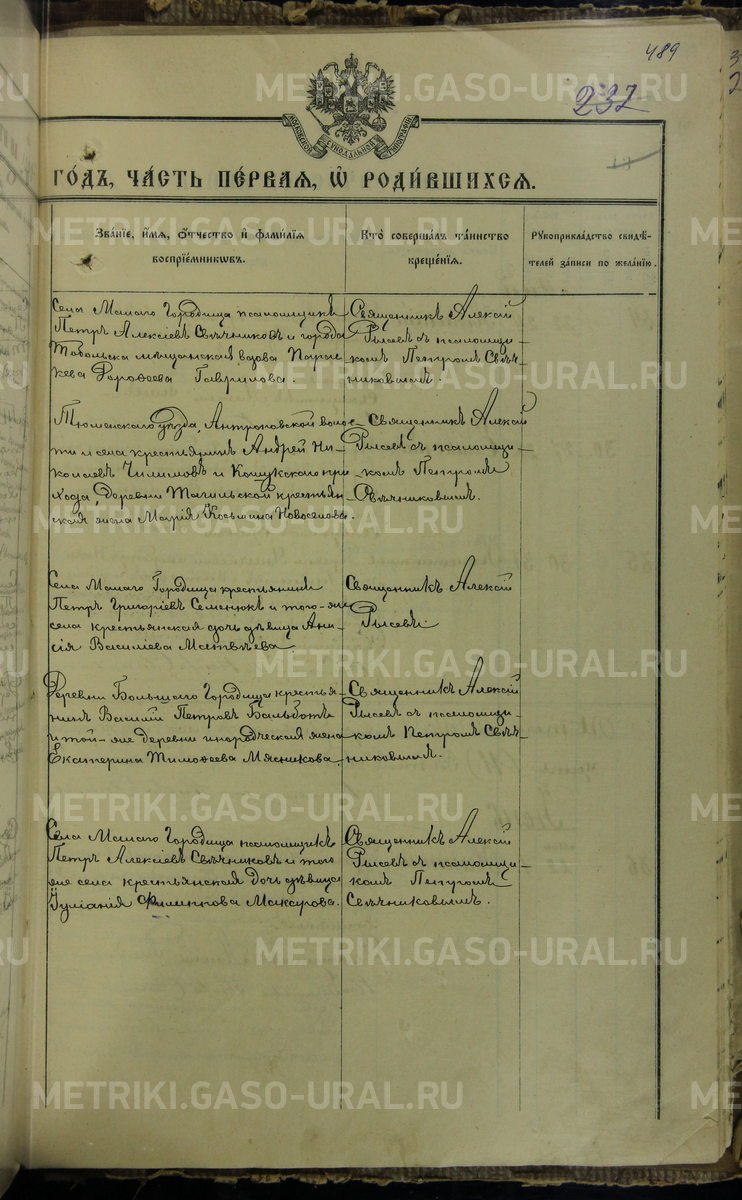 489
237
МОСКОВСКОЙ СѴНОДАЛЬНОЙ ТИПОГРАФІИ
ГО́ДЪ, ЧА́СТЬ ПЕ́РВАЯ, Ѡ҆ РОДИ́ВШИХСЯ.
Зва́нїе, и҆́мя, ѻ҆́тчество и҆ фами́лїя
воспрїе́мникωвъ.
Кто̀ соверша́лъ та́инство
креще́нїя.
Рꙋкоприкла́дство свидѣ́-
телей за́писи по жела́нїю.
Села Малаго Городища псаломщикъ
Петръ Алексіевъ Свѣчниковъ и города
Тобольска мѣщанская вдова Парас
кева Дороѳеева Гаврилова.
Священникъ Алексій
Рысевъ съ псаломщи-
комъ Петромъ Свѣч-
никовымъ.
Тюменскаго уѣзда, Антроповской волос-
ти и села крестьянинъ Андрей Ни-
колаевъ Чилимовъ и Кошукскаго при
хода, деревни Тагильской крестьян-
ская жена Марія Косьмина Новоселова.
Священникъ Алексій
Рысевъ съ псаломщи-
комъ Петромъ
Свѣчниковымъ.
Села Малаго Городища крестьянинъ
Петръ Григоріевъ Семенюкъ и того-же
села крестьянская дочь дѣвица Ани-
сія Василіева Матвѣева
Священникъ Алексій
Рысевъ.
Деревни Большаго Городища крестья-
нинъ Василій Петровъ Бальботъ
и той-же деревни инородческая жена
Екатерина Тимоѳеева Мясникова.
Священникъ Алексій
Рысевъ съ псаломщи-
комъ Петромъ Свѣч-
никовымъ.
Села Малаго Городища псаломщикъ
Петръ Алексіевъ Свѣчниковъ и того
же села крестьянская дочь дѣвица
Іуліанія Филиппова Макарова.
Священникъ Алексій
Рысевъ съ псаломщи-
комъ Петромъ
Свѣчниковымъ.
METRIKI.GASO-URAL.RU